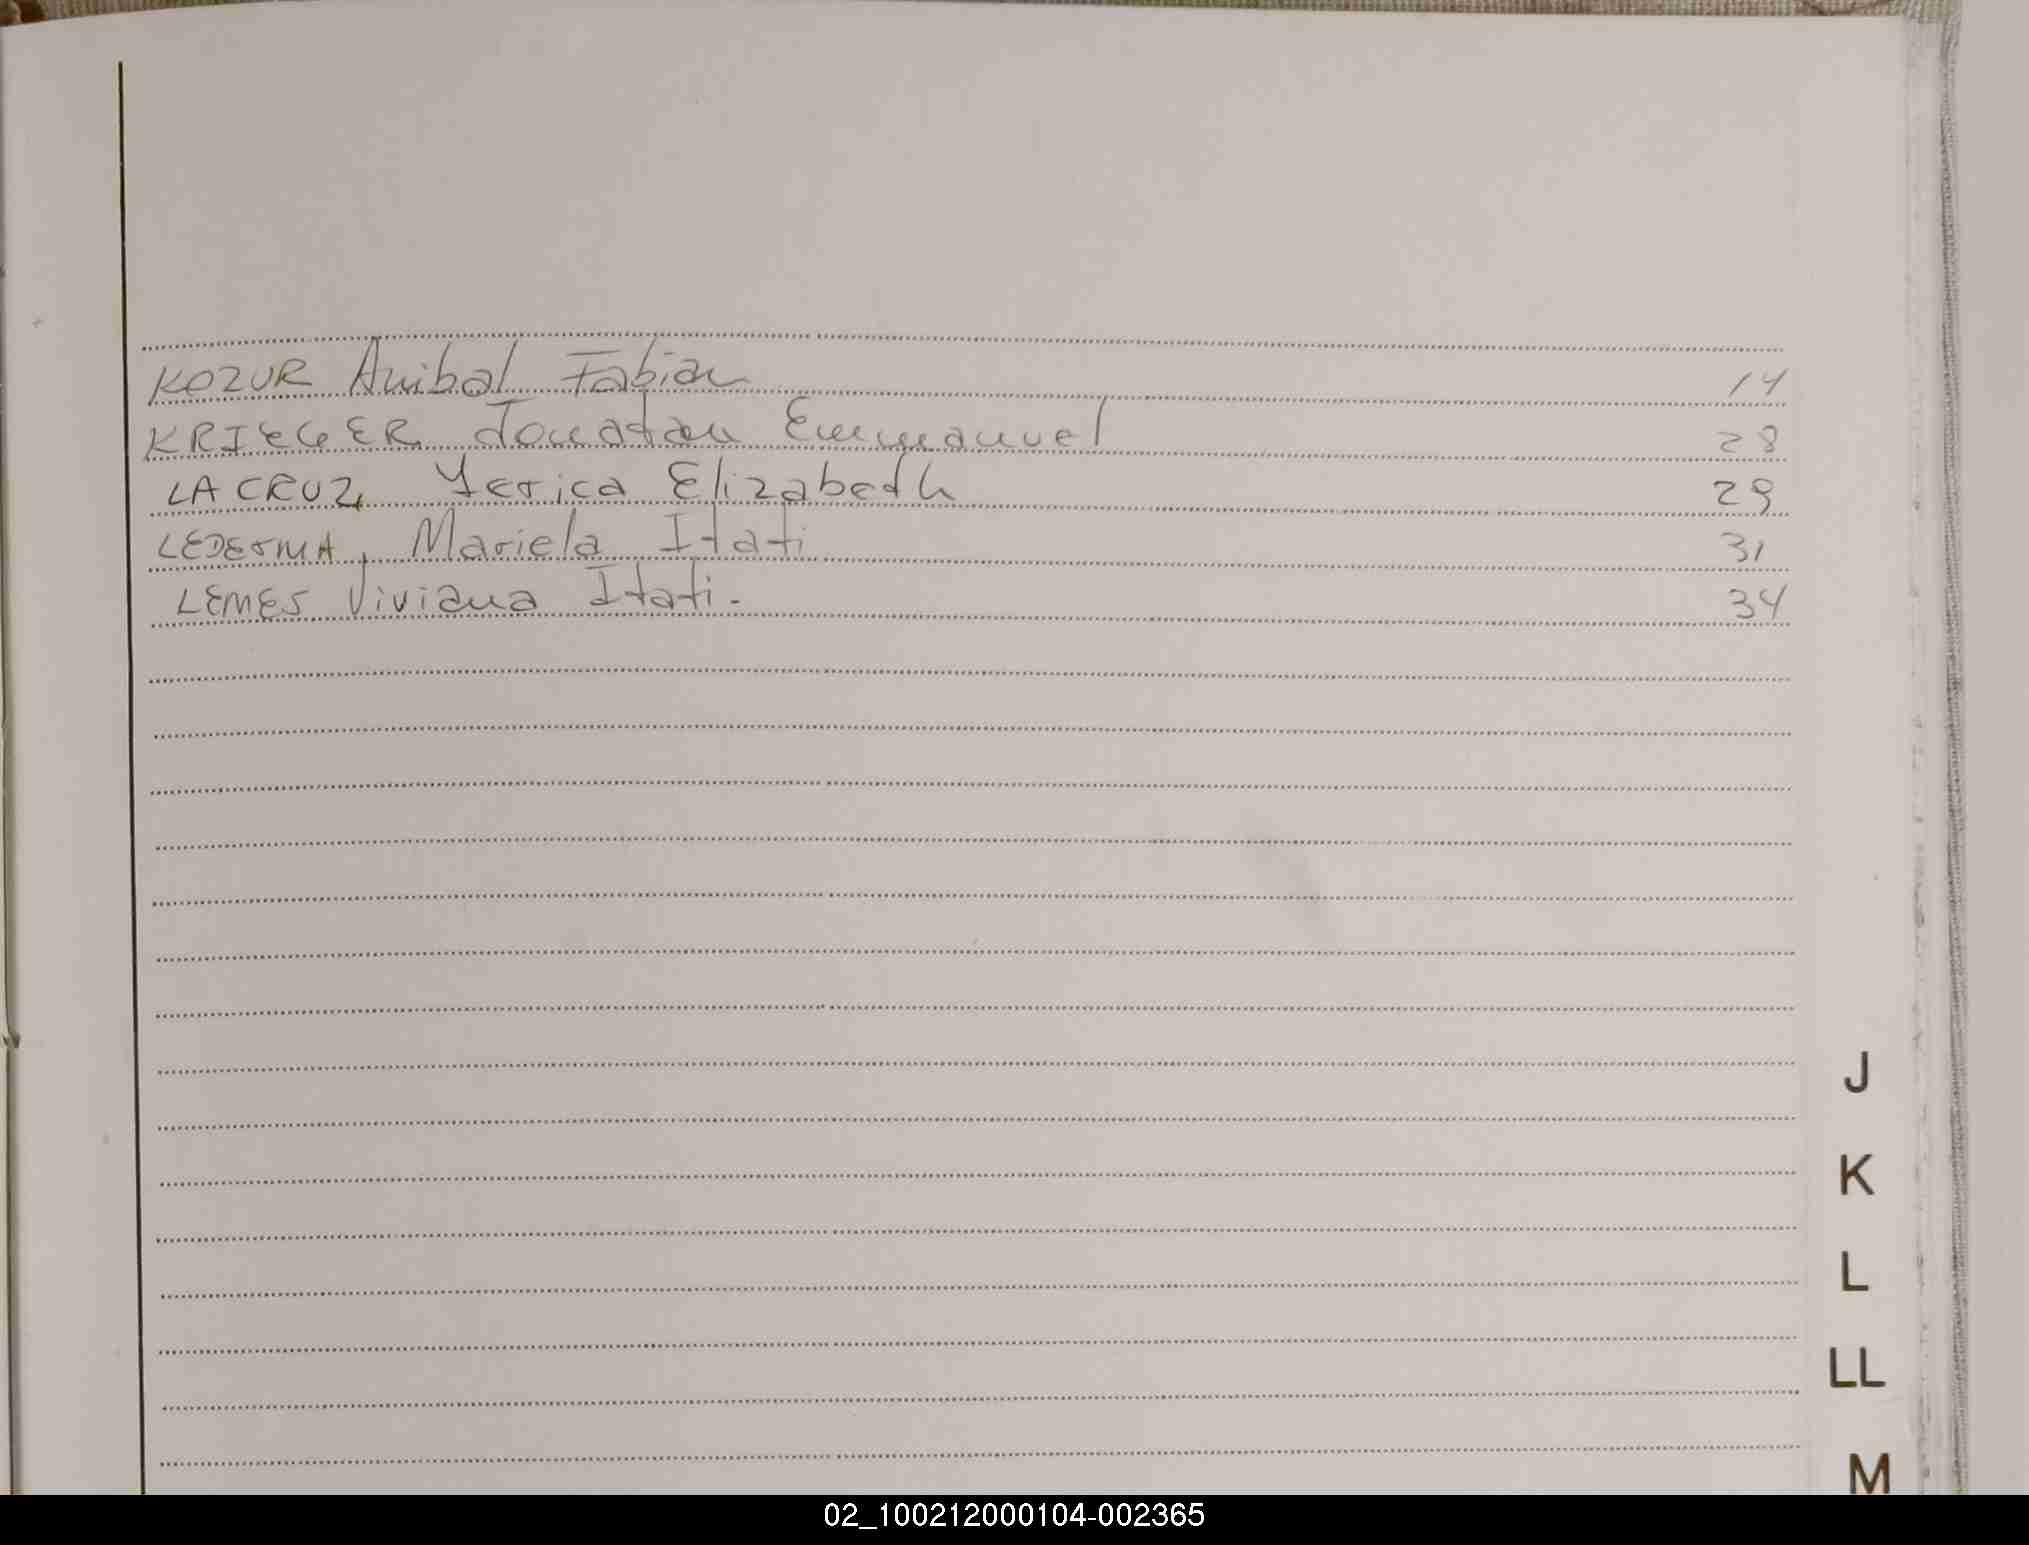 KOZUR Anibal Fabian 14
KRIEGER Jonatan Emmanuel 28
LA CRUZ, Yerica Elizabeth 29
LEDERMA, Mariela Itati 31
LEMES Viviana Itati. 34
J
K
L
LL
M
02_100212000104-002365